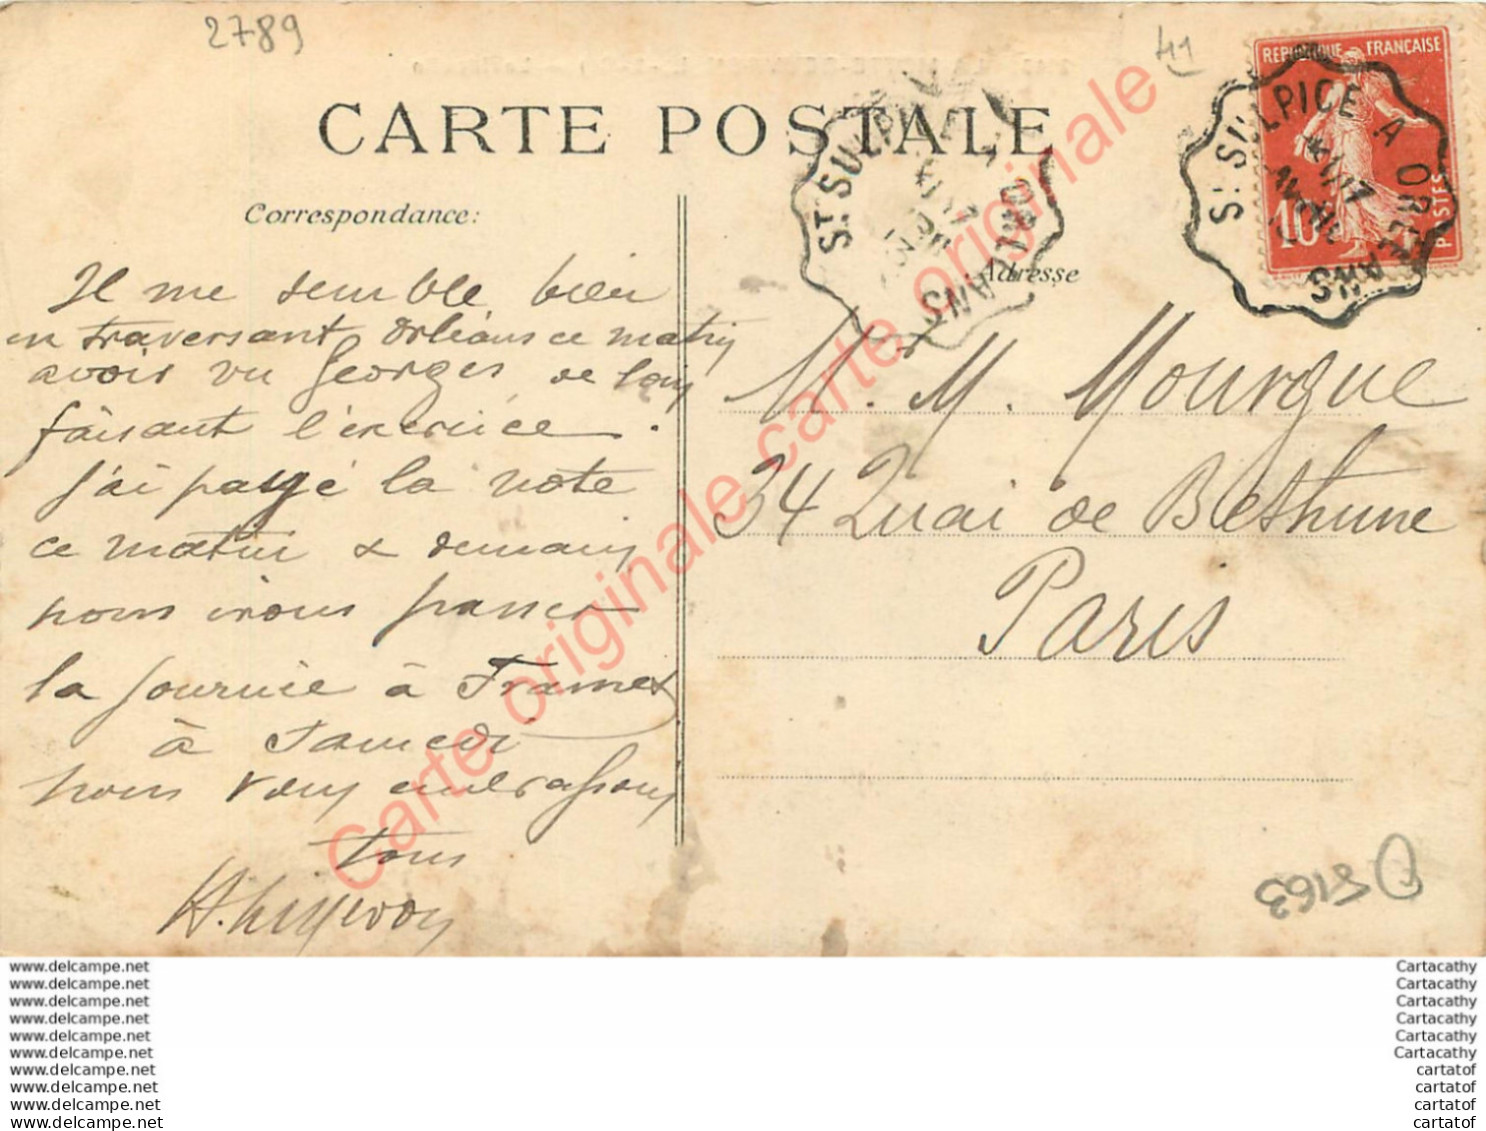 2789
41
CARTE POSTALE
Correspondance:
Adresse
ST SULPICE A ORLEANS
REPUBLIQUE FRANÇAISE
10
POSTES
ST SULPICE A ORLEANS
Il me semble bien
en traversant Orléans ce matin
avoir vu Georges de loin
faisant l'exercice.
j'ai payé la note
ce matin & demain
nous irons passer
la journée à
à Samedi
nous vous embrassons
tous
Mr. M. Mourgue
34 Quai de Bethune
Paris
D 5163
Carte originale carte originale
www.delcampe.net
www.delcampe.net
www.delcampe.net
www.delcampe.net
www.delcampe.net
www.delcampe.net
www.delcampe.net
www.delcampe.net
www.delcampe.net
www.delcampe.net
Cartacathy
Cartacathy
Cartacathy
Cartacathy
Cartacathy
Cartacathy
cartatof
cartatof
cartatof
cartatof